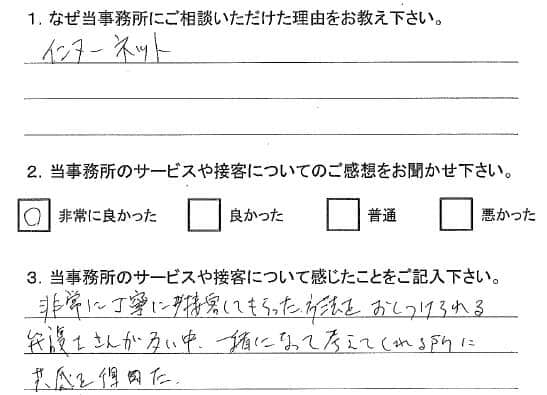 1. なぜ当事務所にご相談いただけた理由をお教え下さい。
インターネット
2. 当事務所のサービスや接客についてのご感想をお聞かせ下さい。
○ 非常に良かった 良かった 普通 悪かった
3. 当事務所のサービスや接客について感じたことをご記入下さい。
非常に丁寧に接客してもらった。方法を おしつけられる
弁護士さんが多い中、一緒になって考えてくれる所に
共感を得た。